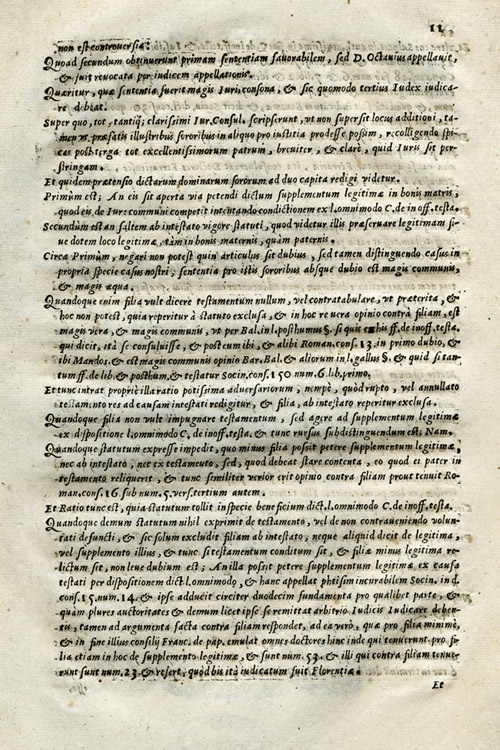 11
non est controversia:
Quod secundum obtinuerunt primam sententiam favorabilem, sed D. Octavius appellavit,
& fuit revocata per iudicem appellationis.
Quæritur, quæ sententia fuerit magis Iuri consona, & sic quomodo tertius Iudex iudica-
re debeat.
Super quo, tot, tantiq; clarissimi Iur. Consul. scripserunt, vt non supersit locus additioni, ta-
men vt præfatis illustribus sororibus in aliquo pro iustitia prodesse possim, recolligendo spi-
cas post terga tot excellentissimorum patrum, breuiter, & clarè, quid Iuris sit per-
stringam.
Et quidem prætensio dictarum dominarum sororum ad duo capita redigi videtur.
Primùm est; An eis sit aperta via petendi dictum supplementum legitimæ in bonis matris,
quod eis, de Iure communi competit intentando condictionem ex l. omnimodo C. de inoff. testa.
Secundùm est an saltem ab intestato vigore statuti, quod videtur illis præseruare legitimam si-
ue dotem loco legitimæ, tàm in bonis maternis, quàm paternis.
Circa Primùm, negari non potest quin articulus sit dubius, sed tamen distinguendo casus in
propria specie casus nostri; sententia pro istis sororibus absque dubio est magis communis,
& magis æqua.
Quandoque enim filia vult dicere testamentum nullum, vel contratabulare, vt præterita, &
hoc non potest, quia reperitur à statuto exclusa, & in hoc re vera opinio contra filiam, est
magis vera, & magis communis, vt per Bal. in l. posthumus §. si quis ff. de inoff. testa.
qui dicit, ità se consuluisse, & post eum ibi, & alibi Roman. cons. 13. in primo dubio, &
ibi Mandos. & est magis communis opinio Bar. Bal. & aliorum in l. gallus §. & quid si tan-
tum ff. de lib. & posthum. & testatur Socin. cons. 150 num. 6. lib. primo.
Et tunc intrat propriè illa ratio potissima adversariorum, nempè, quòd rupto, vel annullato
testamento res ad causam intestati redigitur, & filia, ab intestato reperitur exclusa.
Quandoque filia non vult impugnar testamentum, sed agere ad supplementum legitimæ
ex dispositione l. omnimodo, C. de inoff. testa. & tunc rursus subdistinguendum est; Nam.
Quandoque statutum expresse impedit, quo minus filia possit petere supplementum legitimæ,
nec ab intestato, nec ex testamento, sed, quod debeat stare contenta, eo quod ei pater in
testamento reliquerit, & tunc similiter verior erit opinio contra filiam prout tenuit Ro-
man. cons. 16. sub num. 5. vers. tertium autem.
Et Ratio tunc est, quia statutum tollit in specie beneficium dict. l. omnimodo C. de inoff. testa.
Quandoque demum statutum nihil exprimit de testamento, vel de non contraueniendo volun-
tati defuncti, & sic solum excludit filiam ab intestato; neque aliquid dicit de legitima,
vel supplemento illius, & tunc si testamentum conditum sit, & filiæ minus legitima re-
lictum sit, non leue dubium est; An illa possit petere supplementum legitimæ, ex causa
testati per dispositionem dict. l. omnimodo, & hanc appellat phtisim incurabilem Socin. in d.
cons. 15. num. 14. & ipse adducit circiter duodecim fundamenta pro qualibet parte, &
quàm plures auctoritates & demum licet ipse se remittat arbitrio Iudicis Iudicare deben-
tis, tamen ad argumenta facta contra filiam respondet, ad ea verò, quæ pro filia minimè,
& in fine illius consilij Franc. de pap. cumulat omnes doctores hinc inde qui tenuerunt pro fi-
lia etiam in hoc de supplemento legitimæ, & sunt num. 53. & illi qui contra filiam tenue-
runt sunt num. 23. & refert, quòd bis ità iudicatum fuit Florentiæ.
Et